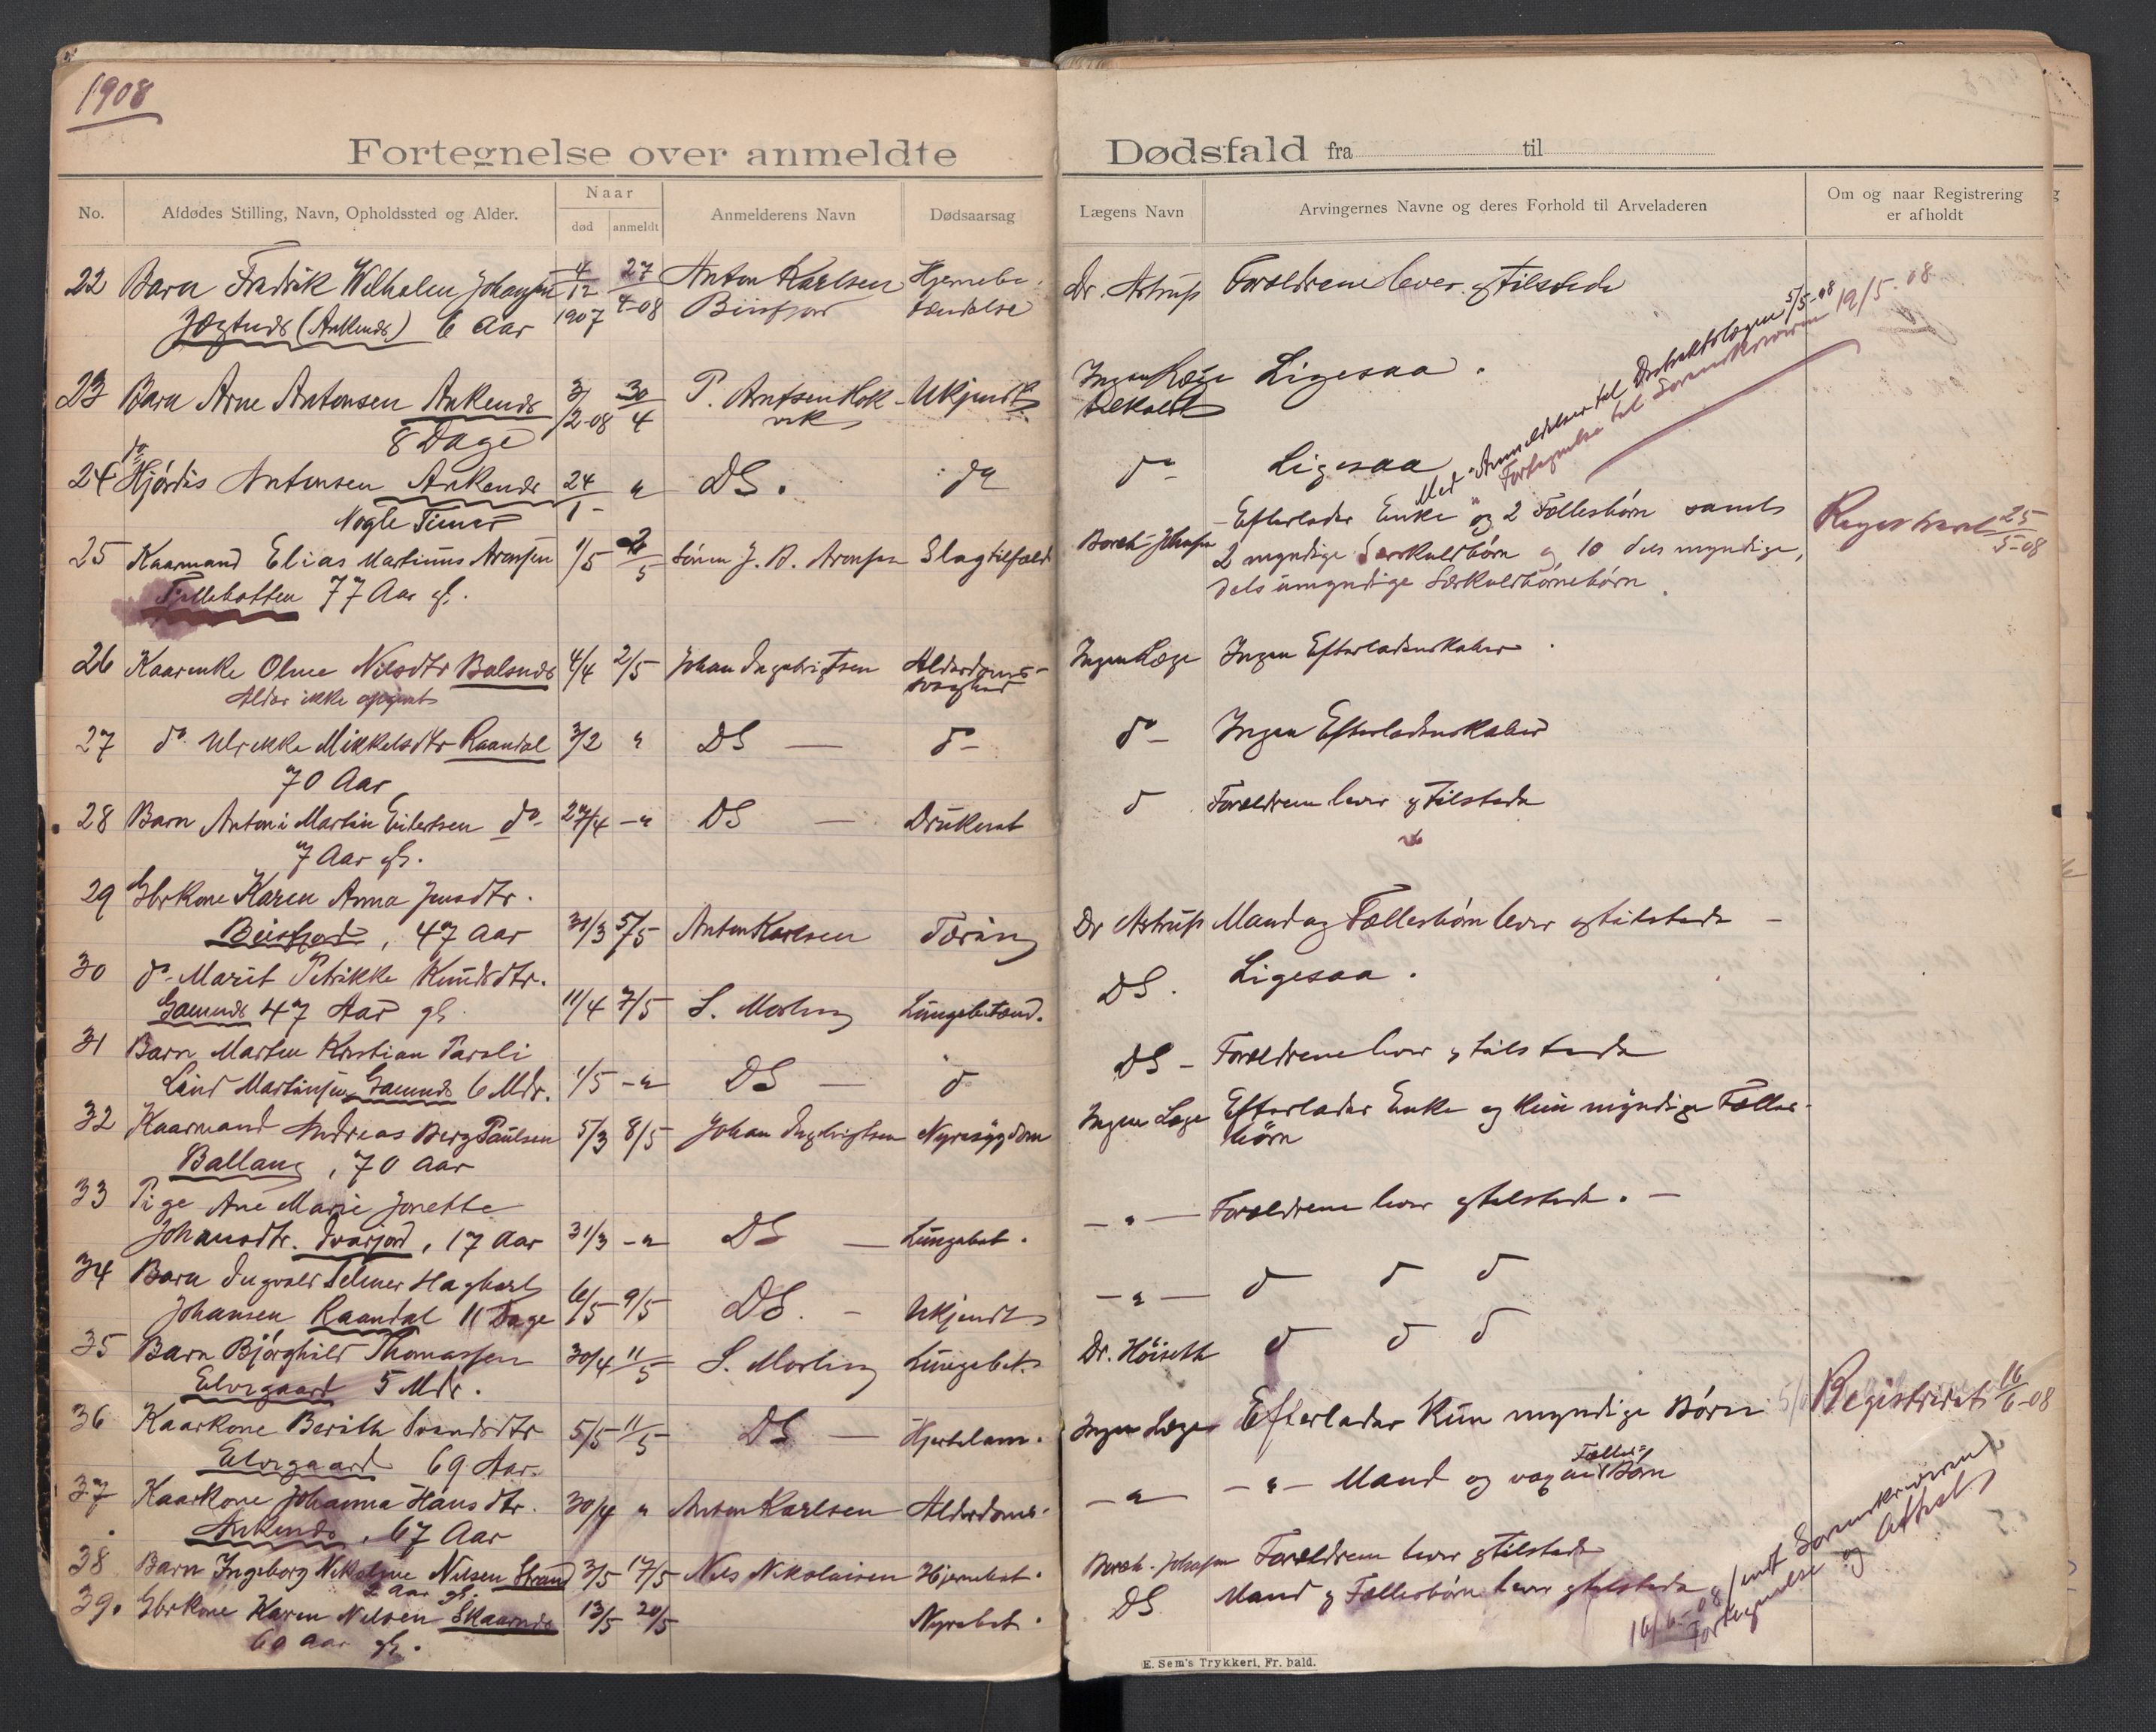 1908
Fortegnelse over anmeldte Dødsfald fra til
No. Afdødes Stilling, Navn, Opholdssted og Alder. Naar død anmeldt Anmelderens Navn Dødsaarsag Lægens Navn Arvingernes Navne og deres Forhold til Arveladeren Om og naar Registrering er afholdt
22 Barn Fredrik Wilhelm Johansen 4/12 27 Anton Karlsen Hjernebe- Dr. Astrup Forældrene lever og tilstede
(Ankends) 6 Aar 1907 4-08 Beisfjord tændelse
Med Anmeldelser til Distriktslægen 5/5-08
Fortegnelse til Sorenskriveren 19/5-08
23 Barn Arne Antonsen Ankends 3/2-08 30/4 P. Arntsen Hok- Ukjendt Ingen Læge Ligesaa.
8 Dage vik tilkaldt
24 do Hjørdis Antonsen Ankends 24/1- " DS. do do- Ligesaa
Nogle Timer
25 Kaarmand Elias Martinus Aronsen 1/5 2/5 Sören J. A. Aronsen Slagtilfælde Borch-Johnsen - Efterlader Enke og 2 Fællesbörn samt Registreret 25/5-08
Fjellbotten 77 Aar gl. 2 myndige Særkuldbörn og 10 dels myndige,
dels umyndige Særkuldbörnebörn.
26 Kaarenke Oline Nilsdtr Balsnes 4/4 2/5 Johan Ingebrigtsen Alderdoms- Ingen Læge Ingen Efterladenskaber.
Alder ikke opgivet svaghed
27 do Ulrikke Mikkelsdtr Raandal 3/2 " DS — do- do- Ingen Efterladenskaber
70 Aar
28 Barn Antoni Martin Eilertsen do- 27/4 -" DS — Druknet do Forældrene lever og tilstede
7 Aar gl.
29 Gbrkone Karen Anna Jensdtr.
Beisfjord, 47 Aar 31/3 5/5 Anton Karlsen Tæring Dr Astrup Mand og Fællesbörn lever og tilstede -
30 do- Marit Petrikke Knudsdtr.
47 Aar gl. 11/4 7/5 S. Morling Lungebetænd. DS. Ligesaa.
31 Barn Marten Kristian Paroli
Lind Martinsen 6 Mdr. 1/5 -" DS — do DS - Forældrene lever og tilstede
32 Kaarmand Andreas Berg Paulsen 5/3 8/5 Johan Ingebrigtsen Nyresygdom Ingen Læge Efterlader Enke og kun myndige Fælles-
Ballang, 70 Aar börn
33 Pige Ane Marie Jonette
Johansdtr. 17 Aar 31/3 -" DS — Lungebet. -"- Forældrene lever og tilstede. -
34 Barn Ingvald Selmer Hagbart
Johansen Raandal 11 Dage 6/5 9/5 DS. - Ukjendt -"- do do do
35 Barn Björghild Thomassen 30/4 11/5 S. Morling Lungebet. Dr. Höiseth do do do
Elvegaard 5 Mdr.
36 Kaarkone Berith Svendsdtr 5/5 11/5 DS — Hjertelam. Ingen Læge Efterlader kun myndige Börn Registreret 16/6-08
Elvegaard 69 Aar.
37 Kaarkone Johanna Hansdtr. 30/4 " Anton Karlsen Alderdoms- -"- -"- Mand og voxne Fælles- Börn
Ankends, 67 Aar
38 Barn Ingeborg Nikoline Nilsen Strand 3/5 17/5 Nils Nikolaisen Hjernebet. Borch-Johnsen Forældrene lever og tilstede
2 Aar gl.
39. Gbrkone Karen Nilsen Skaarnes 13/5 20/5 Nyrebet. DS Mand og Fællesbörn lever og tilstede
60 Aar gl.
16/6-08 sendt Sorenskriveren
Fortegnelse og Attest.
E. Sem's Trykkeri, Fr. hald.